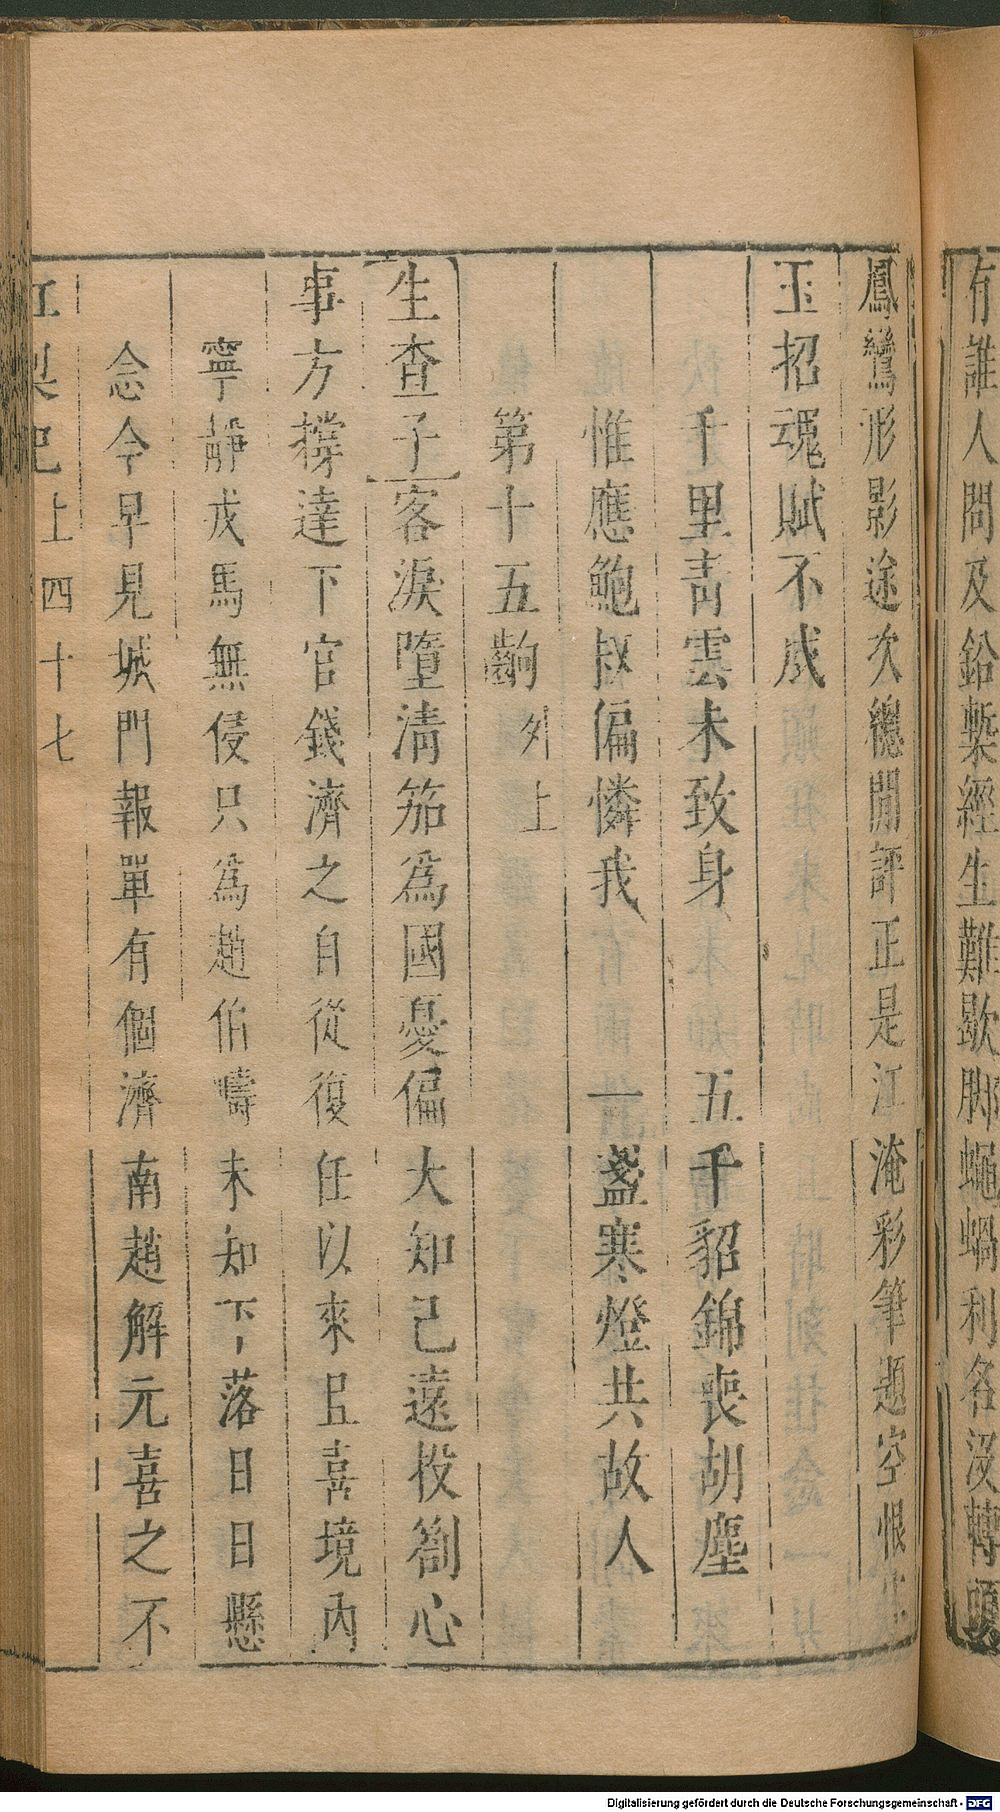 有誰人問及鉛槧經生難歇脚蠅蝸利名没轉頭
鳳鸞形影途次總閒評正是江淹彩筆題空恨生
玉招魂賦不成
千里靑雲未致身　五千貂錦喪胡塵
惟應鮑叔偏憐我　一盞寒燈共故人
第十五齣　外上
生查子　客淚墮淸笳爲國憂偏大知己遠投芻心
事方撐達下官錢濟之自從復任以來且喜境內
寧靜戎馬無侵只爲趙伯疇未知下落日日懸
念今早見城門報單有個濟南趙解元喜之不
紅梨記上四十七
Digitalisierung gefördert durch die Deutsche Forschungsgemeinschaft - DFG